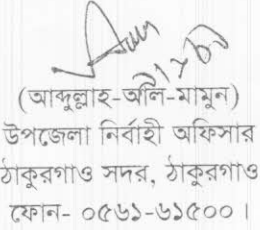 (আব্দুল্লাহ-অলি-মামুন)
উপজেলা নির্বাহী অফিসার
ঠাকুরগাও সদর, ঠাকুরগাও
ফোন- ০৫৬১-৬১৫০০।